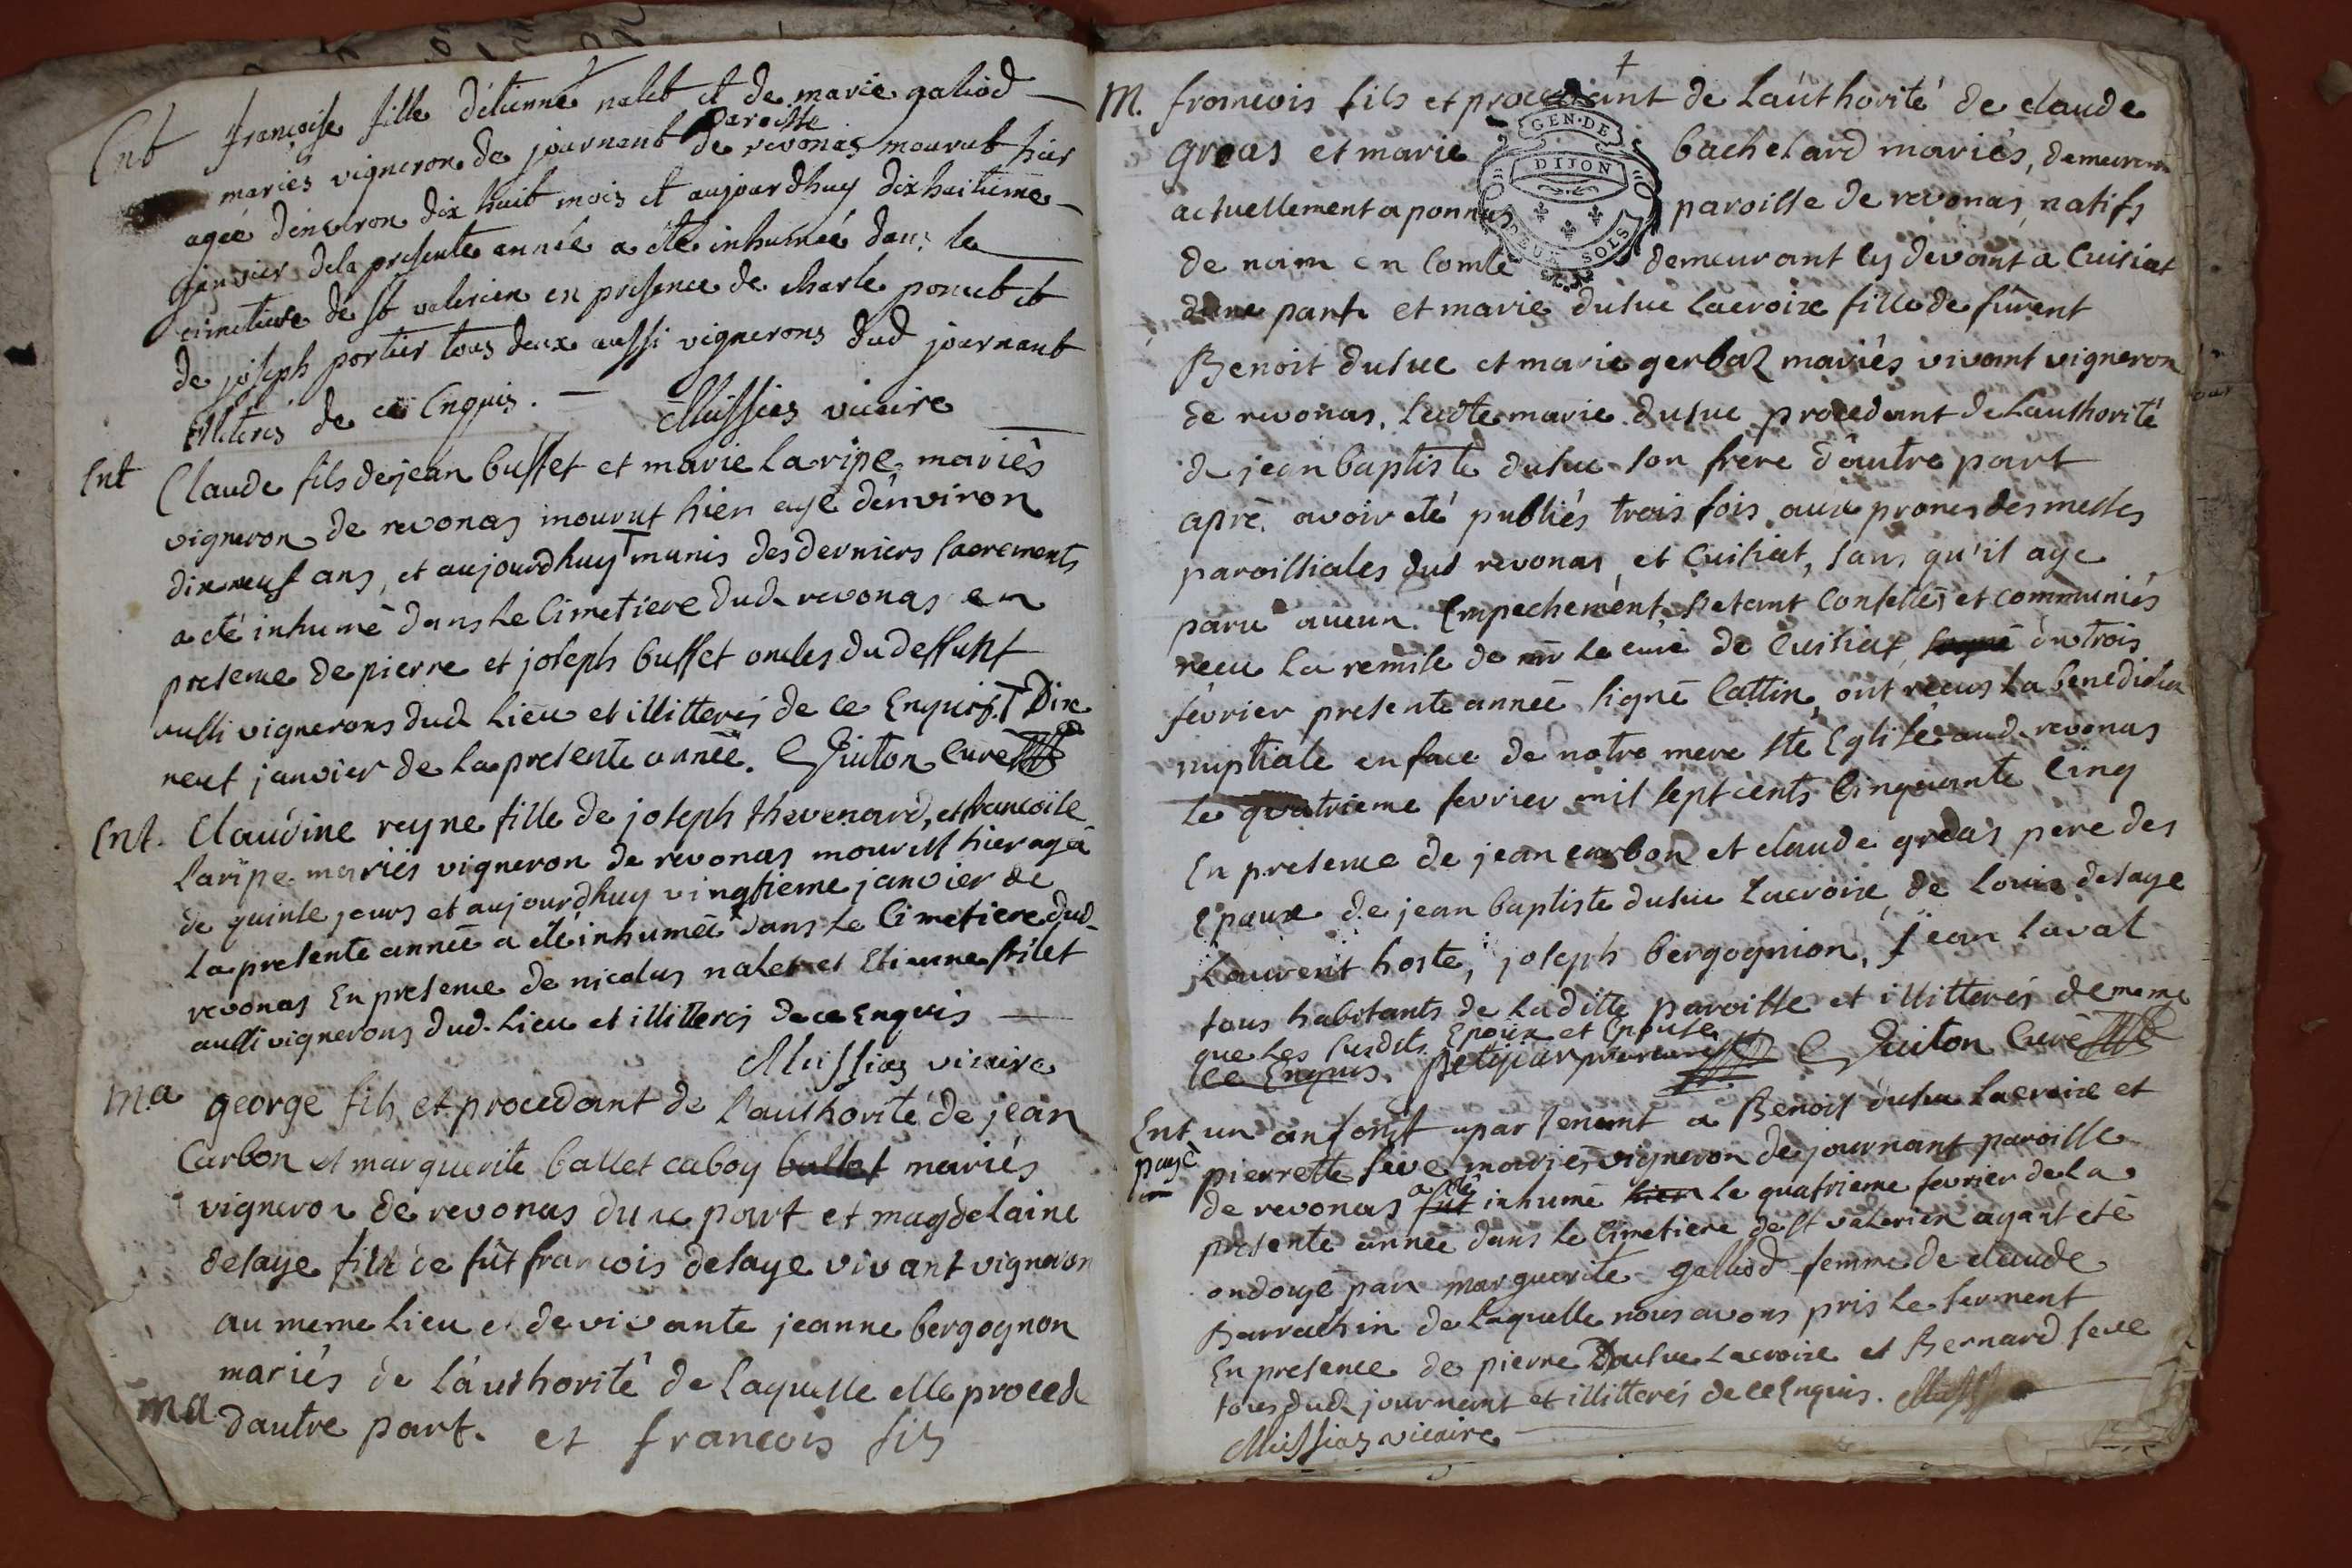 Ent françoise fille d'étienne nalet et de marie galiod
mariés vigneron de journant paroisse de revonas mourut hier
agée d'environ dix huit mois et aujourdhuy dixhuitieme
janvier dela presente année a été inhumée dans le
cimetiere de st valerien en presence de charle poncet et
de joseph portier tous deux aussi vignerons dud journant
illiterés de ce Enquis. Mussias vicaire
Ent Claude fils de jean buffet et marie laripe mariés
vigneron de revonas mourut hier agé d'environ
dixneuf ans, et aujourdhuy T munis des derniers sacrements
a été inhumé dans le Cimetiere dud. revonas en
presence de pierre et joseph buffet oncles du deffunt
aussi vignerons dud lieu et illitterés de ce Enquis. T Dix
neuf janvier de la presente année. Guiton Curé
Ent. Claudine reyne fille de joseph thevenard, et francoise
laripe mariés vigneron de revonas mourut hier agéé
de quinse jours et aujourdhuy vingtieme janvier de
la presente année a été inhumée dans le Cimetiere dud.
revonas En presence de nicolas nalet et Etienne
aussi vignerons dud. lieu et illitterés de ce Enquis
Mussias vicaire
m.a george fils et procedant de l'authorité de jean
Carbon et marguerite ballet caboy ballet mariés
vigneron de revonas dune part et magdelaine
delaye fille de fût francois delaye vivant vigneron
au meme lieu et de vivante jeanne bergognon
mariés de l'authorité de laquelle elle procede
ma d'autre part. et francois fils
M. francois fils et procedant de l'authorité de claude
GEN. DE
greas et marie bachelard mariés, demeurant
DIJON
actuellement a ponnas paroisse de revonas, natifs
DEUX SOLS
de naim en Comté demeurant cy devant a Cuisiat
d'une part et marie dusuc lacroix fille de fûrent
Benoit dusuc et marie gerbaz mariés vivant vigneron
de revonas, ladte marie dusuc procedant de l'authorité
de jean baptiste dusuc son frere d'autre part
apré avoir été publiés trois fois aux prones des messes
paroissiales dud revonas, et Cuisiat, sans qu'il aye
paru aucun Empechement, setant Confessés et communiés
recu la remise de mr le curé de Cuisiat, signé du trois
février presente année signé Cattin, ont recus la benediction
nuptiale en face de notre mere ste Eglise aud. revonas
le quatrieme fevrier mil sept cents Cinquante Cinq
En presence de jean carbon et claude greas pere des
Epoux de jean baptiste dusuc lacroix, de louis delaye
Laurent hoste, joseph bergognion, jean laval
tous habitants de laditte paroisse et illitterés de meme
que les susdits Epoux et Epouse
de ce Enquis. Guiton Curé
Ent un anfont apartenant a Benoit dusuc lacroix et
payé pierrette seve mariés vigneron de journant paroisse
de revonas fut a été inhumé hier le quatrieme fevrier de la
presente année dans le Cimetiere de st valerien ayant eté
ondoyé par marguerite galliod femme de claude
Barrachin de laquelle nous avons pris le serment
En presence de pierre Dusuc lacroix et Bernard seve
tous dud journant et illitterés de ce Enquis. Muss
Mussias vicaire